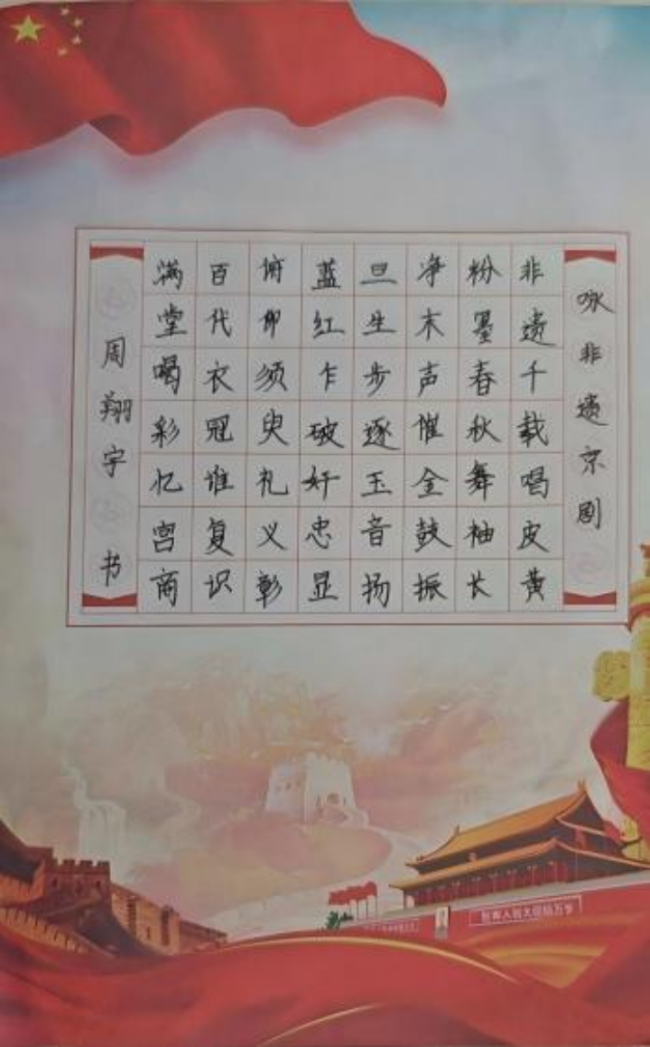 咏非遗京剧
非遗千载唱皮黄
粉墨春秋舞袖长
净末声催金鼓振
旦生步逐玉音扬
蓝红乍破奸忠显
俯仰须臾礼义彰
百代衣冠谁复识
满堂喝彩忆宫商
周翔宇书